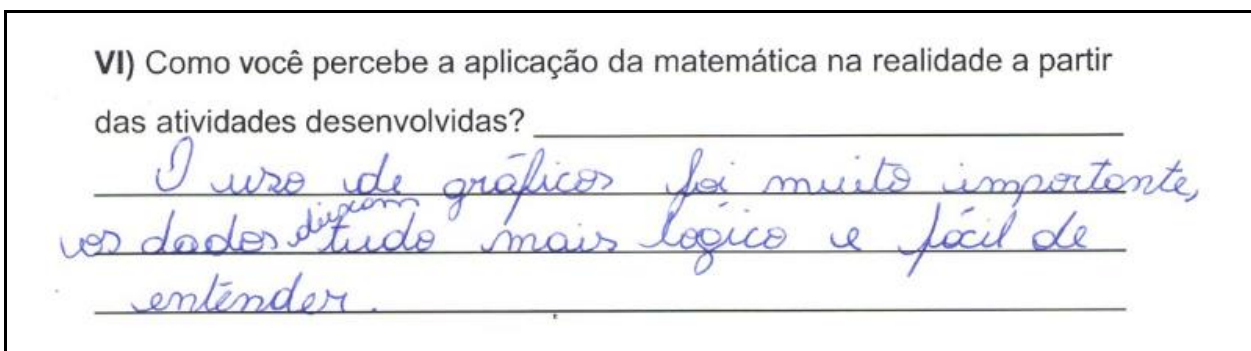 VI) Como você percebe a aplicação da matemática na realidade a partir
das atividades desenvolvidas?
O uso de gráficos foi muito importante,
os dados deixam tudo mais lógico e fácil de
entender.